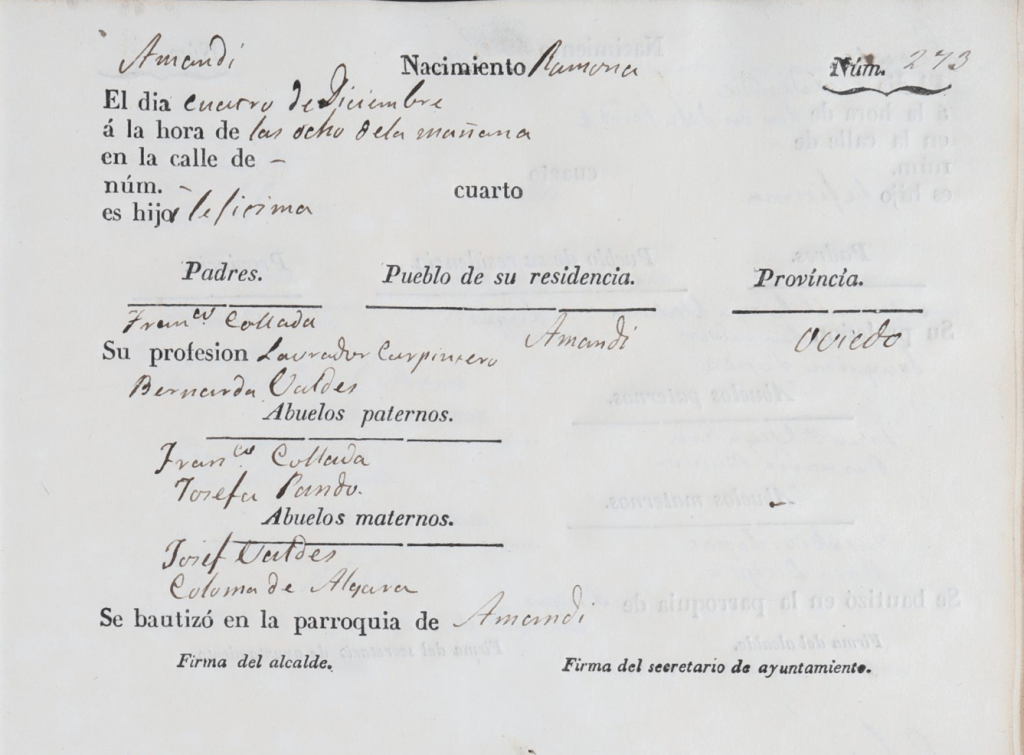 Amandi Nacimiento Ramona Núm. 273
El dia cuatro de Diciembre
á la hora de las ocho de la mañana
en la calle de -
núm. - cuarto
es hija lexitima
Padres. Pueblo de su residencia. Província.
Fran.co Collada
Amandi Oviedo
Su profesion Lavrador Carpintero
Bernarda Valdes
Abuelos paternos.
Fran.co Collada
Josefa Pando.
Abuelos maternos.
Josef Valdes
Coloma de Algara
Se bautizó en la parroquia de Amandi
Firma del alcalde. Firma del secretario de ayuntamiento.